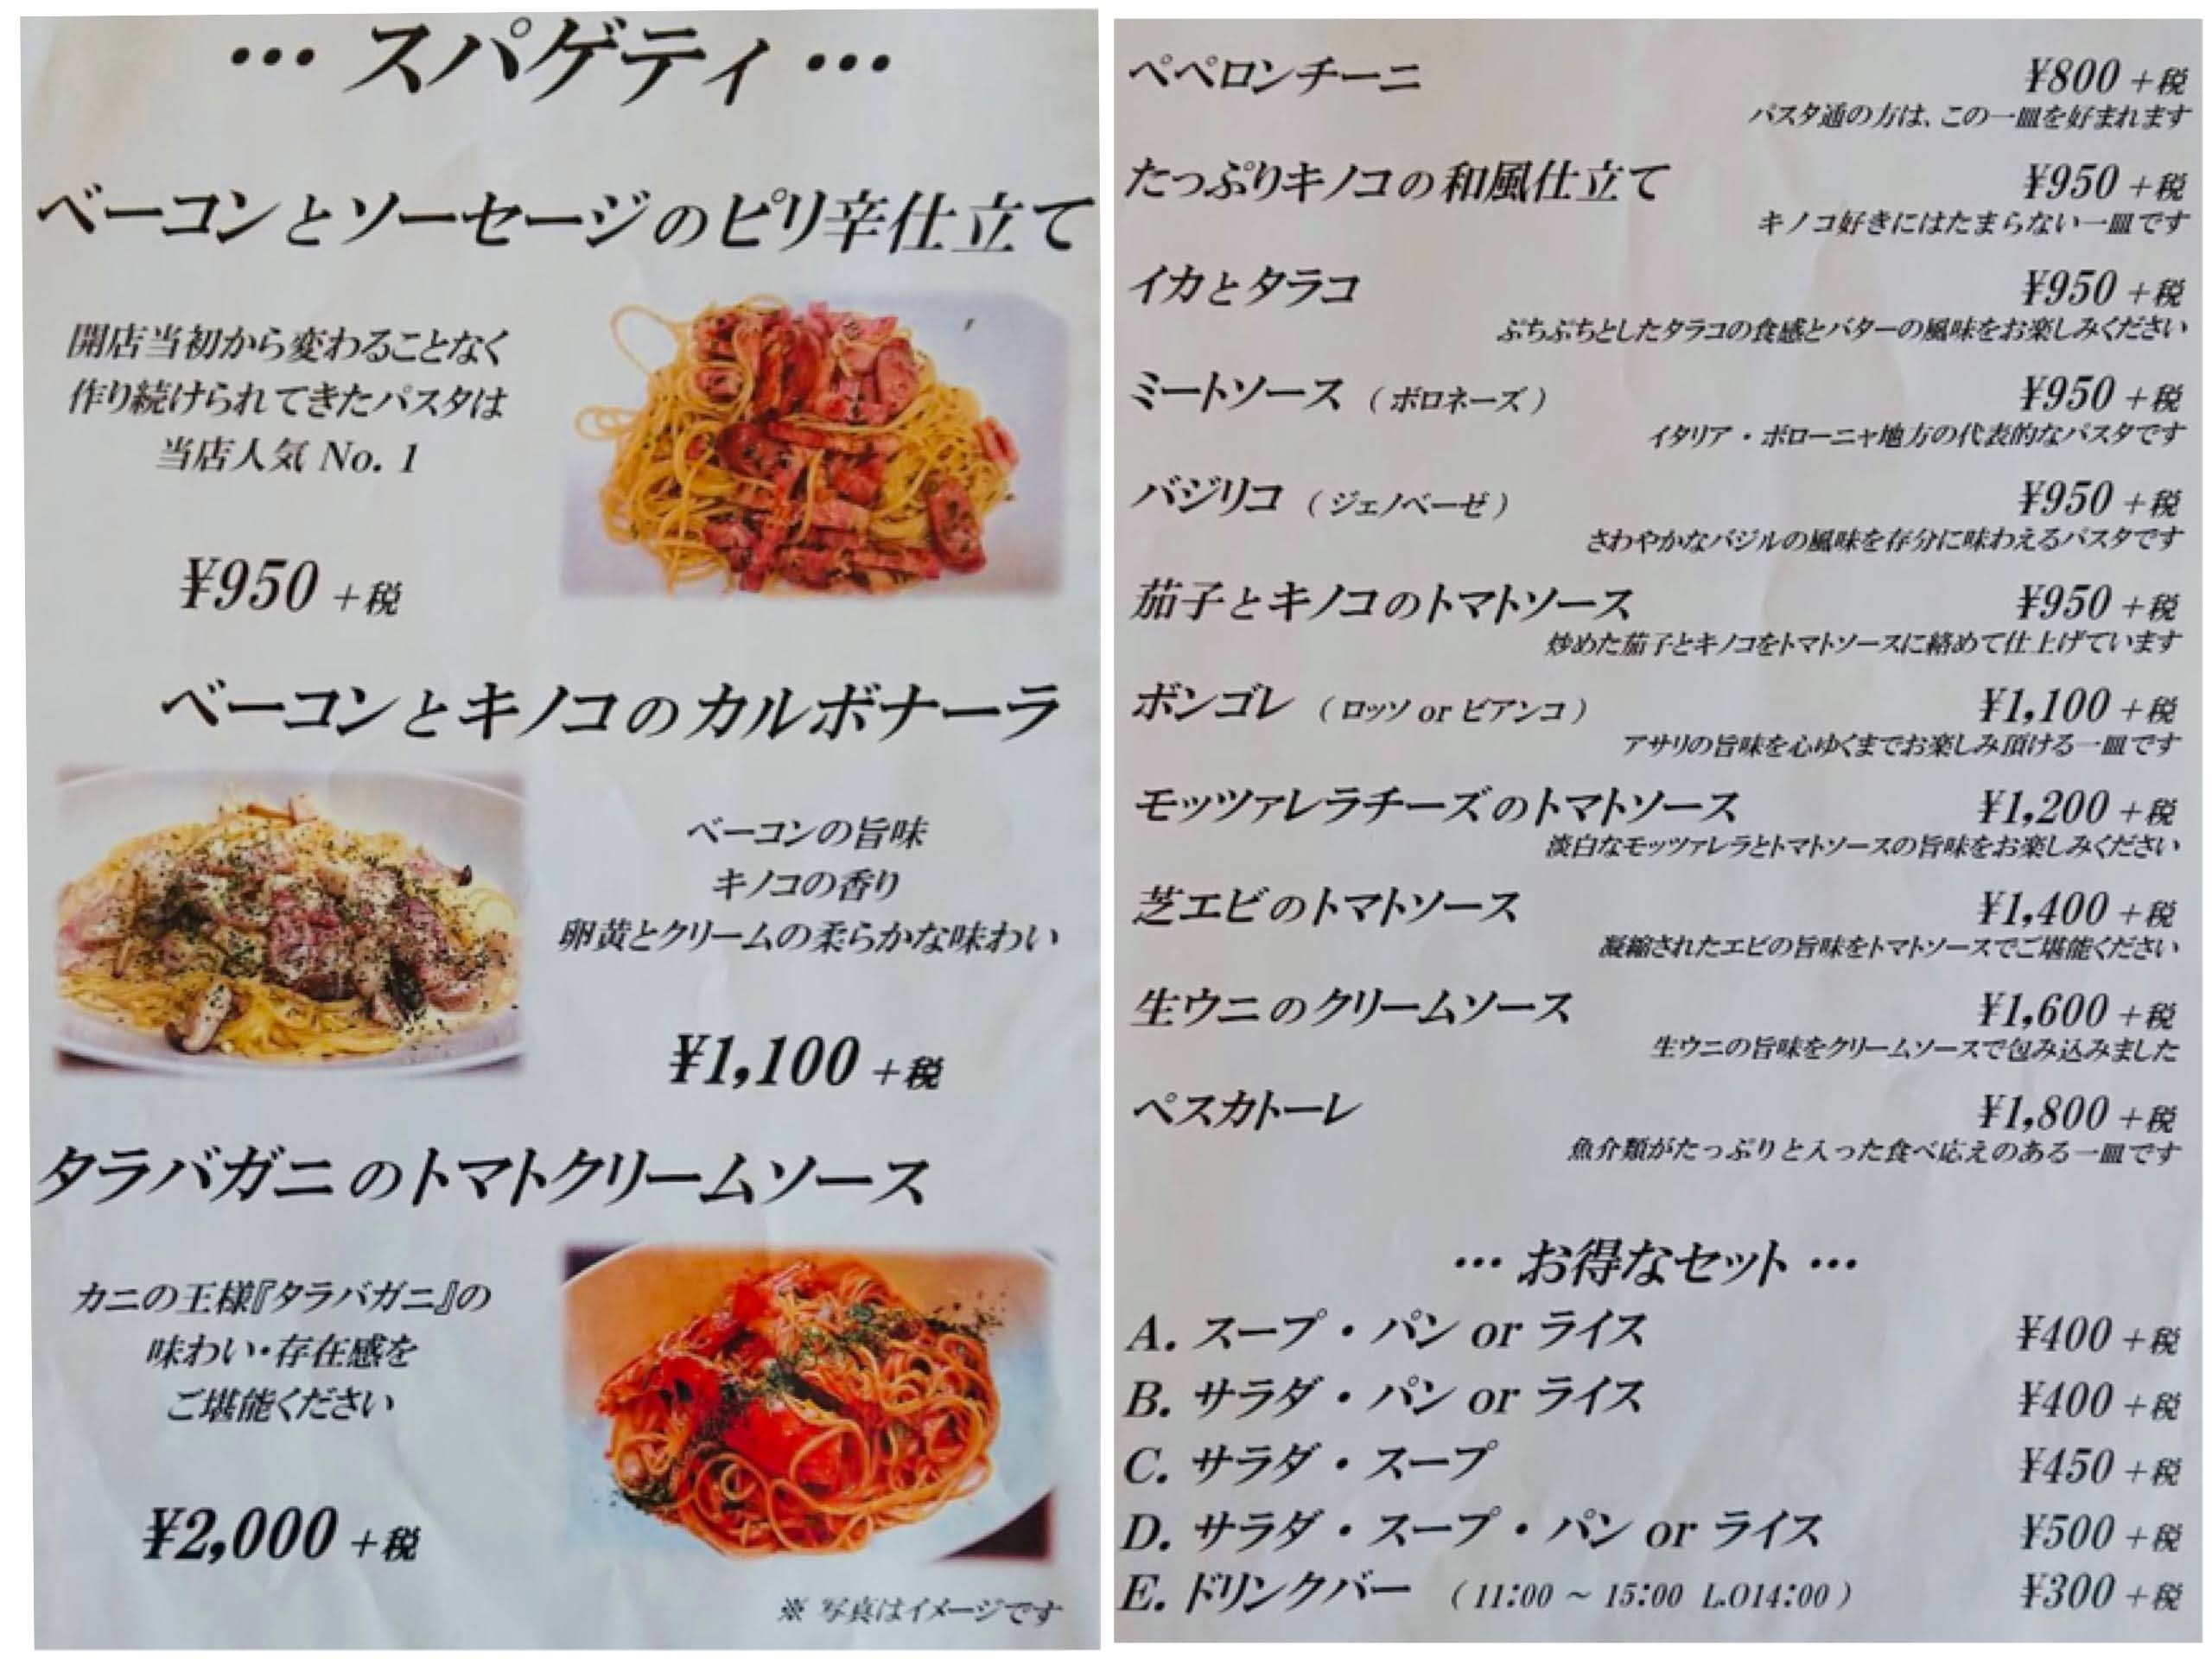 … スパゲティ …
ベーコンとソーセージのピリ辛仕立て
開店当初から変わることなく
作り続けられてきたパスタは
当店人気 No. 1
¥950 +税
ベーコンとキノコのカルボナーラ
ベーコンの旨味
キノコの香り
卵黄とクリームの柔らかな味わい
¥1,100 +税
タラバガニのトマトクリームソース
カニの王様『タラバガニ』の
味わい・存在感を
ご堪能ください
¥2,000 +税
※ 写真はイメージです
ペペロンチーニ ¥800 +税
パスタ通の方は、この一皿を好まれます
たっぷりキノコの和風仕立て ¥950 +税
キノコ好きにはたまらない一皿です
イカとタラコ ¥950 +税
ぷちぷちとしたタラコの食感とバターの風味をお楽しみください
ミートソース (ボロネーズ) ¥950 +税
イタリア・ボローニャ地方の代表的なパスタです
バジリコ (ジェノベーゼ) ¥950 +税
さわやかなバジルの風味を存分に味わえるパスタです
茄子とキノコのトマトソース ¥950 +税
炒めた茄子とキノコをトマトソースに絡めて仕上げています
ボンゴレ (ロッソ or ビアンコ) ¥1,100 +税
アサリの旨味を心ゆくまでお楽しみ頂ける一皿です
モッツァレラチーズのトマトソース ¥1,200 +税
淡白なモッツァレラとトマトソースの旨味をお楽しみください
芝エビのトマトソース ¥1,400 +税
凝縮されたエビの旨味をトマトソースでご堪能ください
生ウニのクリームソース ¥1,600 +税
生ウニの旨味をクリームソースで包み込みました
ペスカトーレ ¥1,800 +税
魚介類がたっぷりと入った食べ応えのある一皿です
… お得なセット …
A. スープ・パン or ライス ¥400 +税
B. サラダ・パン or ライス ¥400 +税
C. サラダ・スープ ¥450 +税
D. サラダ・スープ・パン or ライス ¥500 +税
E. ドリンクバー (11:00 ~ 15:00 L.O14:00) ¥300 +税